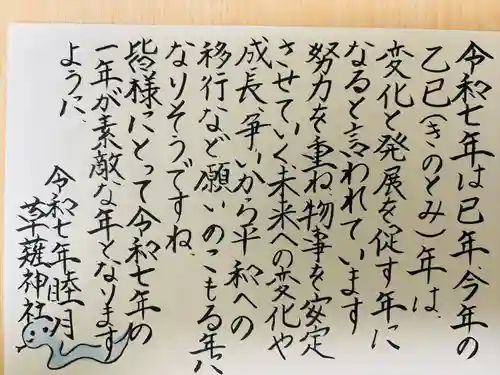 令和七年は巳年、今年の
乙巳(きのとみ)年は、
変化と発展を促す年に
なると言われています
努力を重ね物事を安定
させていく未来への変化や
成長、争いから平和への
移行など願いのこもる年に
なりそうですね。
皆様にとって令和七年の
一年が素敵な年となります
ように、
令和七年睦月
草薙神社